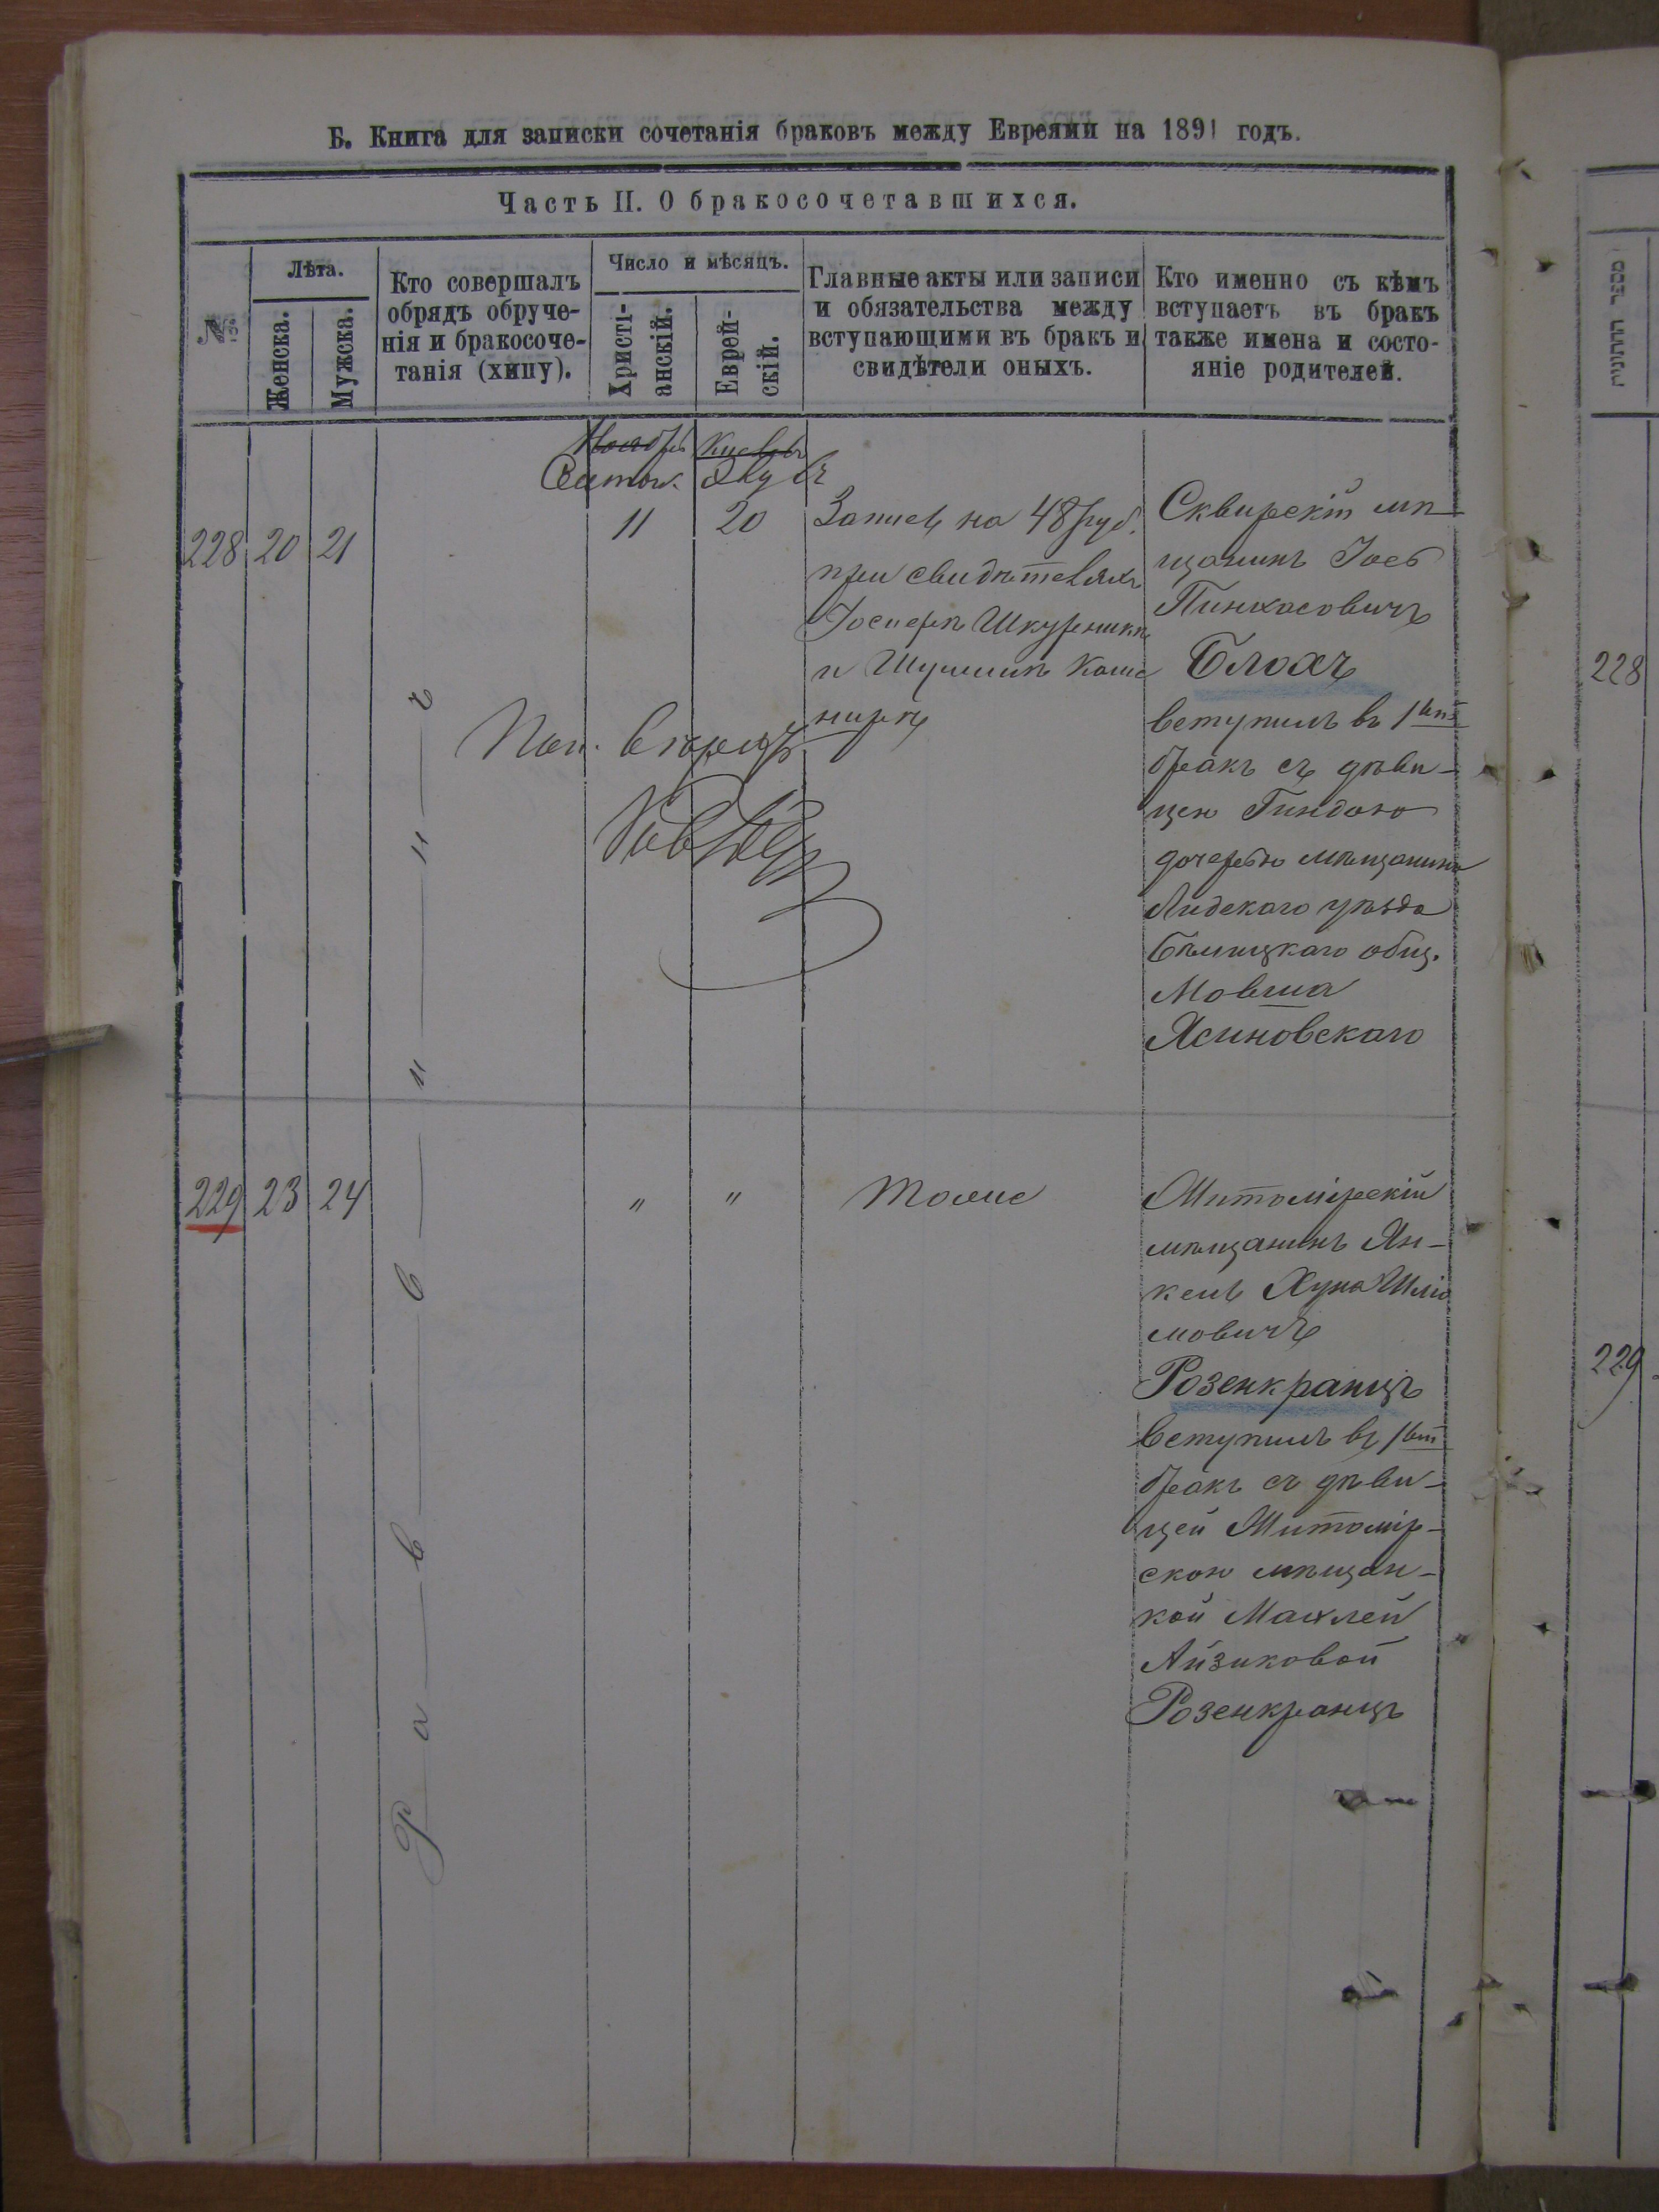 Б. Книга для записки сочетанія браковъ между Евреями на 1891 годъ.
Часть II. О бракосочетавшихся.
№
Лѣта.
Женска.
Мужска.
Кто совершалъ
обрядъ обруче-
нія и бракосоче-
танія (хипу).
Число и мѣсяцъ.
Христі-
анскій.
Еврей-
скій.
Главные акты или записи
и обязательства между
вступающими въ бракъ и
свидѣтели оныхъ.
Кто именно съ кѣмъ
вступаетъ въ бракъ
также имена и состо-
яніе родителей.
228
20
21
Ноабрь
11
20
Запись на 48 руб.
при свидѣтеляхъ
Іосифѣ Шкурникѣ
и
Сквирскій мѣ-
щанинъ Іось
Пинхасовичъ
Блохъ
вступилъ въ 1ый
бракъ съ дѣви-
цею Гиндою
дочерью мѣщанина
Лидскаго уѣзда
Бѣлицкаго общ.
Мовша
Ясиновскаго
229
23
24
"
"
Тоже
Житомірскій
мѣщанинъ Ян-
кель Хуна Шліо
мовичъ
Розенкранцъ
вступилъ въ 1ый
бракъ съ дѣви-
цей Житомір-
скою мѣщан-
кой Махлей
Айзиковой
Розенкранцъ
Р а в в и н ъ
מספר החתונות
228
229